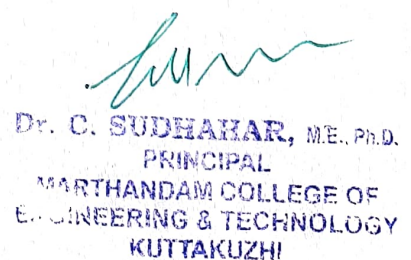 Dr. C. SUDHAHAR, M.E., Ph.D.
PRINCIPAL
MARTHANDAM COLLEGE OF
ENGINEERING & TECHNOLOGY
KUTTAKUZHI